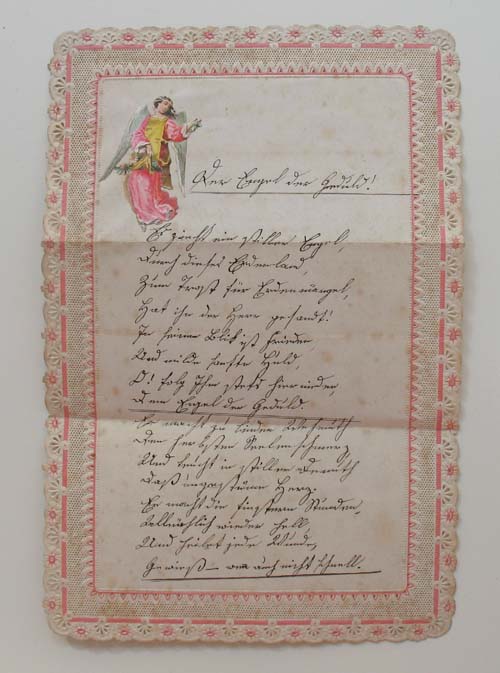 Der Engel der Geduld!
Es zieht ein stiller Engel,
Durch dieses Erdenland,
Zum Trost für Erdenmängel,
Hat ihn der Herr gesandt!
In seinem Blik ist Frieden
Und milde sanfte Huld,
O! folg Ihm stets hienieden,
Dem Engel der Geduld.
Er macht zu linder Wehmuth
Den herbsten Seelenschmerz
Und taucht in stille Demuth
Daß ungestüme Herz.
Er macht die finstern Stunden,
Allmählich wieder hell,
Und heilet jede Wunde,
Gewieß – wen auch nicht schnell.